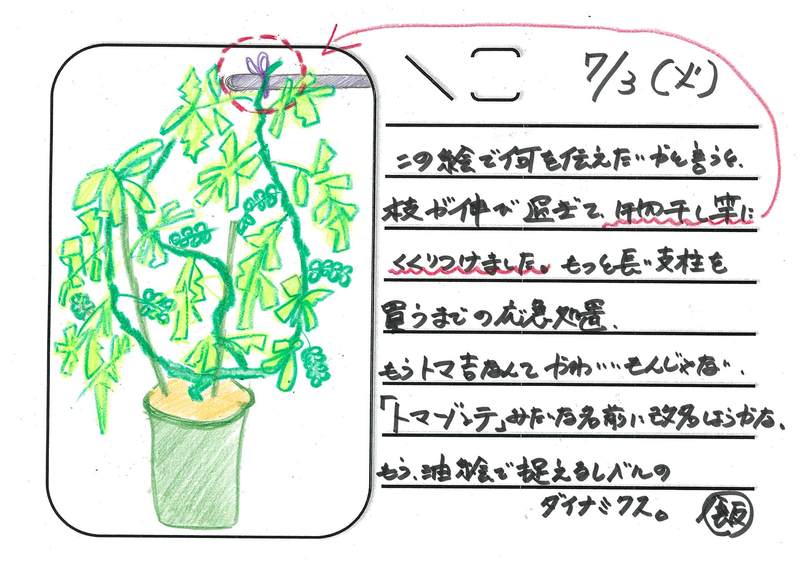 7/3(火)
この絵で何を伝えたいかと言うと、
枝が伸び過ぎて、物干し竿に
くくりつけました。もっと長い支柱を
買うまでの応急処置、
もうトマ吉なんて かわいいもんじゃない、
「トマゾンテ」みたいな名前に改名しようかな、
もう、油絵で捉えるレベルの
ダイナミクス。